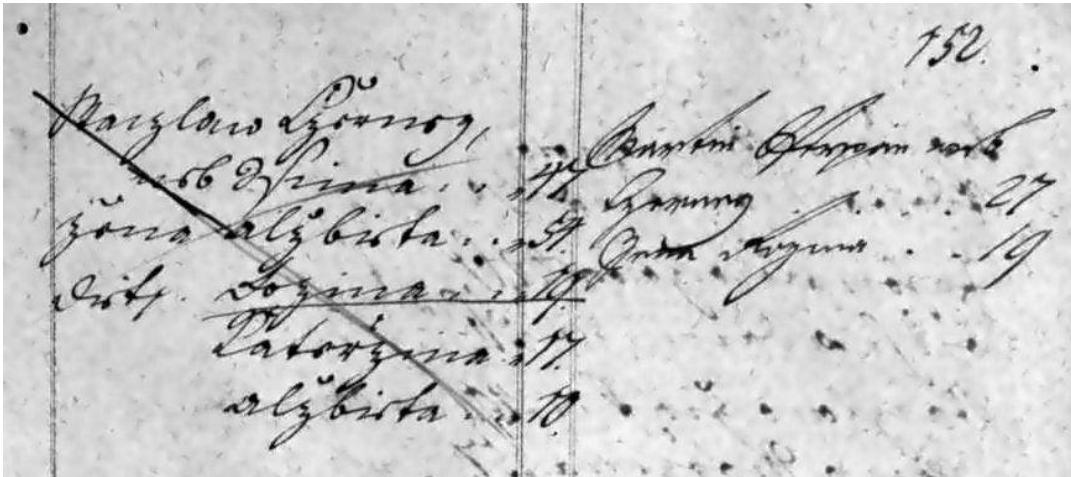 152.
Waczlaw Czerney,
neb Ssima . . . 47
žena Alžbieta . . . 51.
Dit: Rozina . . . 19.
Kateržina . 17.
Alžbieta . . . 10
Martin Stepan neb
Czerney . . . 27
žena Rozina . . . 19.